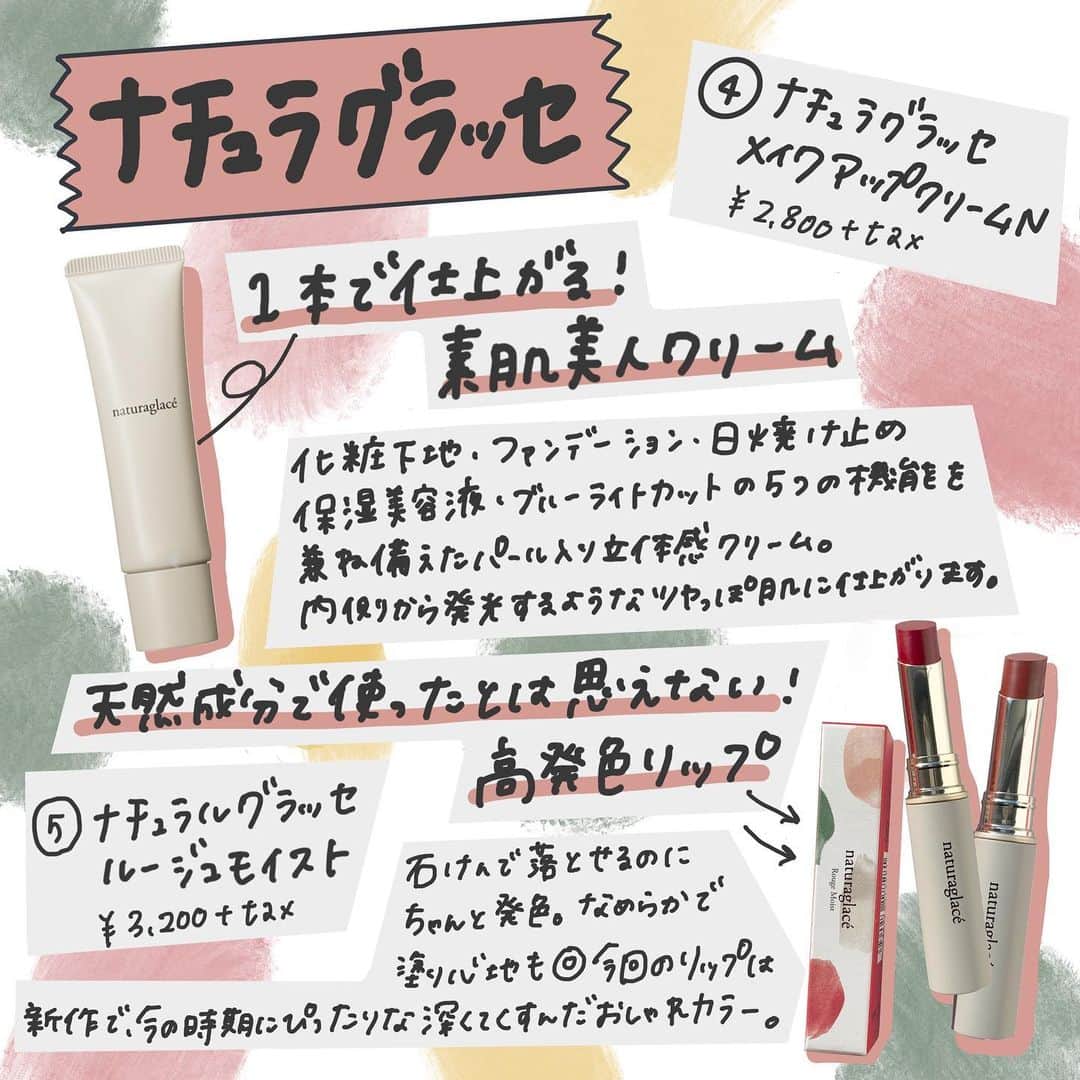 ナチュラグラッセ
④ ナチュラグラッセ
メイクアップクリームN
¥2,800+tax
1本で仕上がる!
素肌美人クリーム
naturaglacé
化粧下地・ファンデーション・日焼け止め
保湿美容液・ブルーライトカットの5つの機能を
兼ね備えたパール入り立体感クリーム。
内側から発光するようなツヤっぽ肌に仕上がります。
天然成分で使ったとは思えない!
高発色リップ
⑤ ナチュラルグラッセ
ルージュモイスト
¥3,200+tax
石けんで落とせるのに
ちゃんと発色。なめらかで
塗り心地も◎今回のリップは
新作で、今の時期にぴったりな深くてくすんだおしゃれカラー。
naturaglacé
Rouge Moist
naturaglacé
naturaglacé